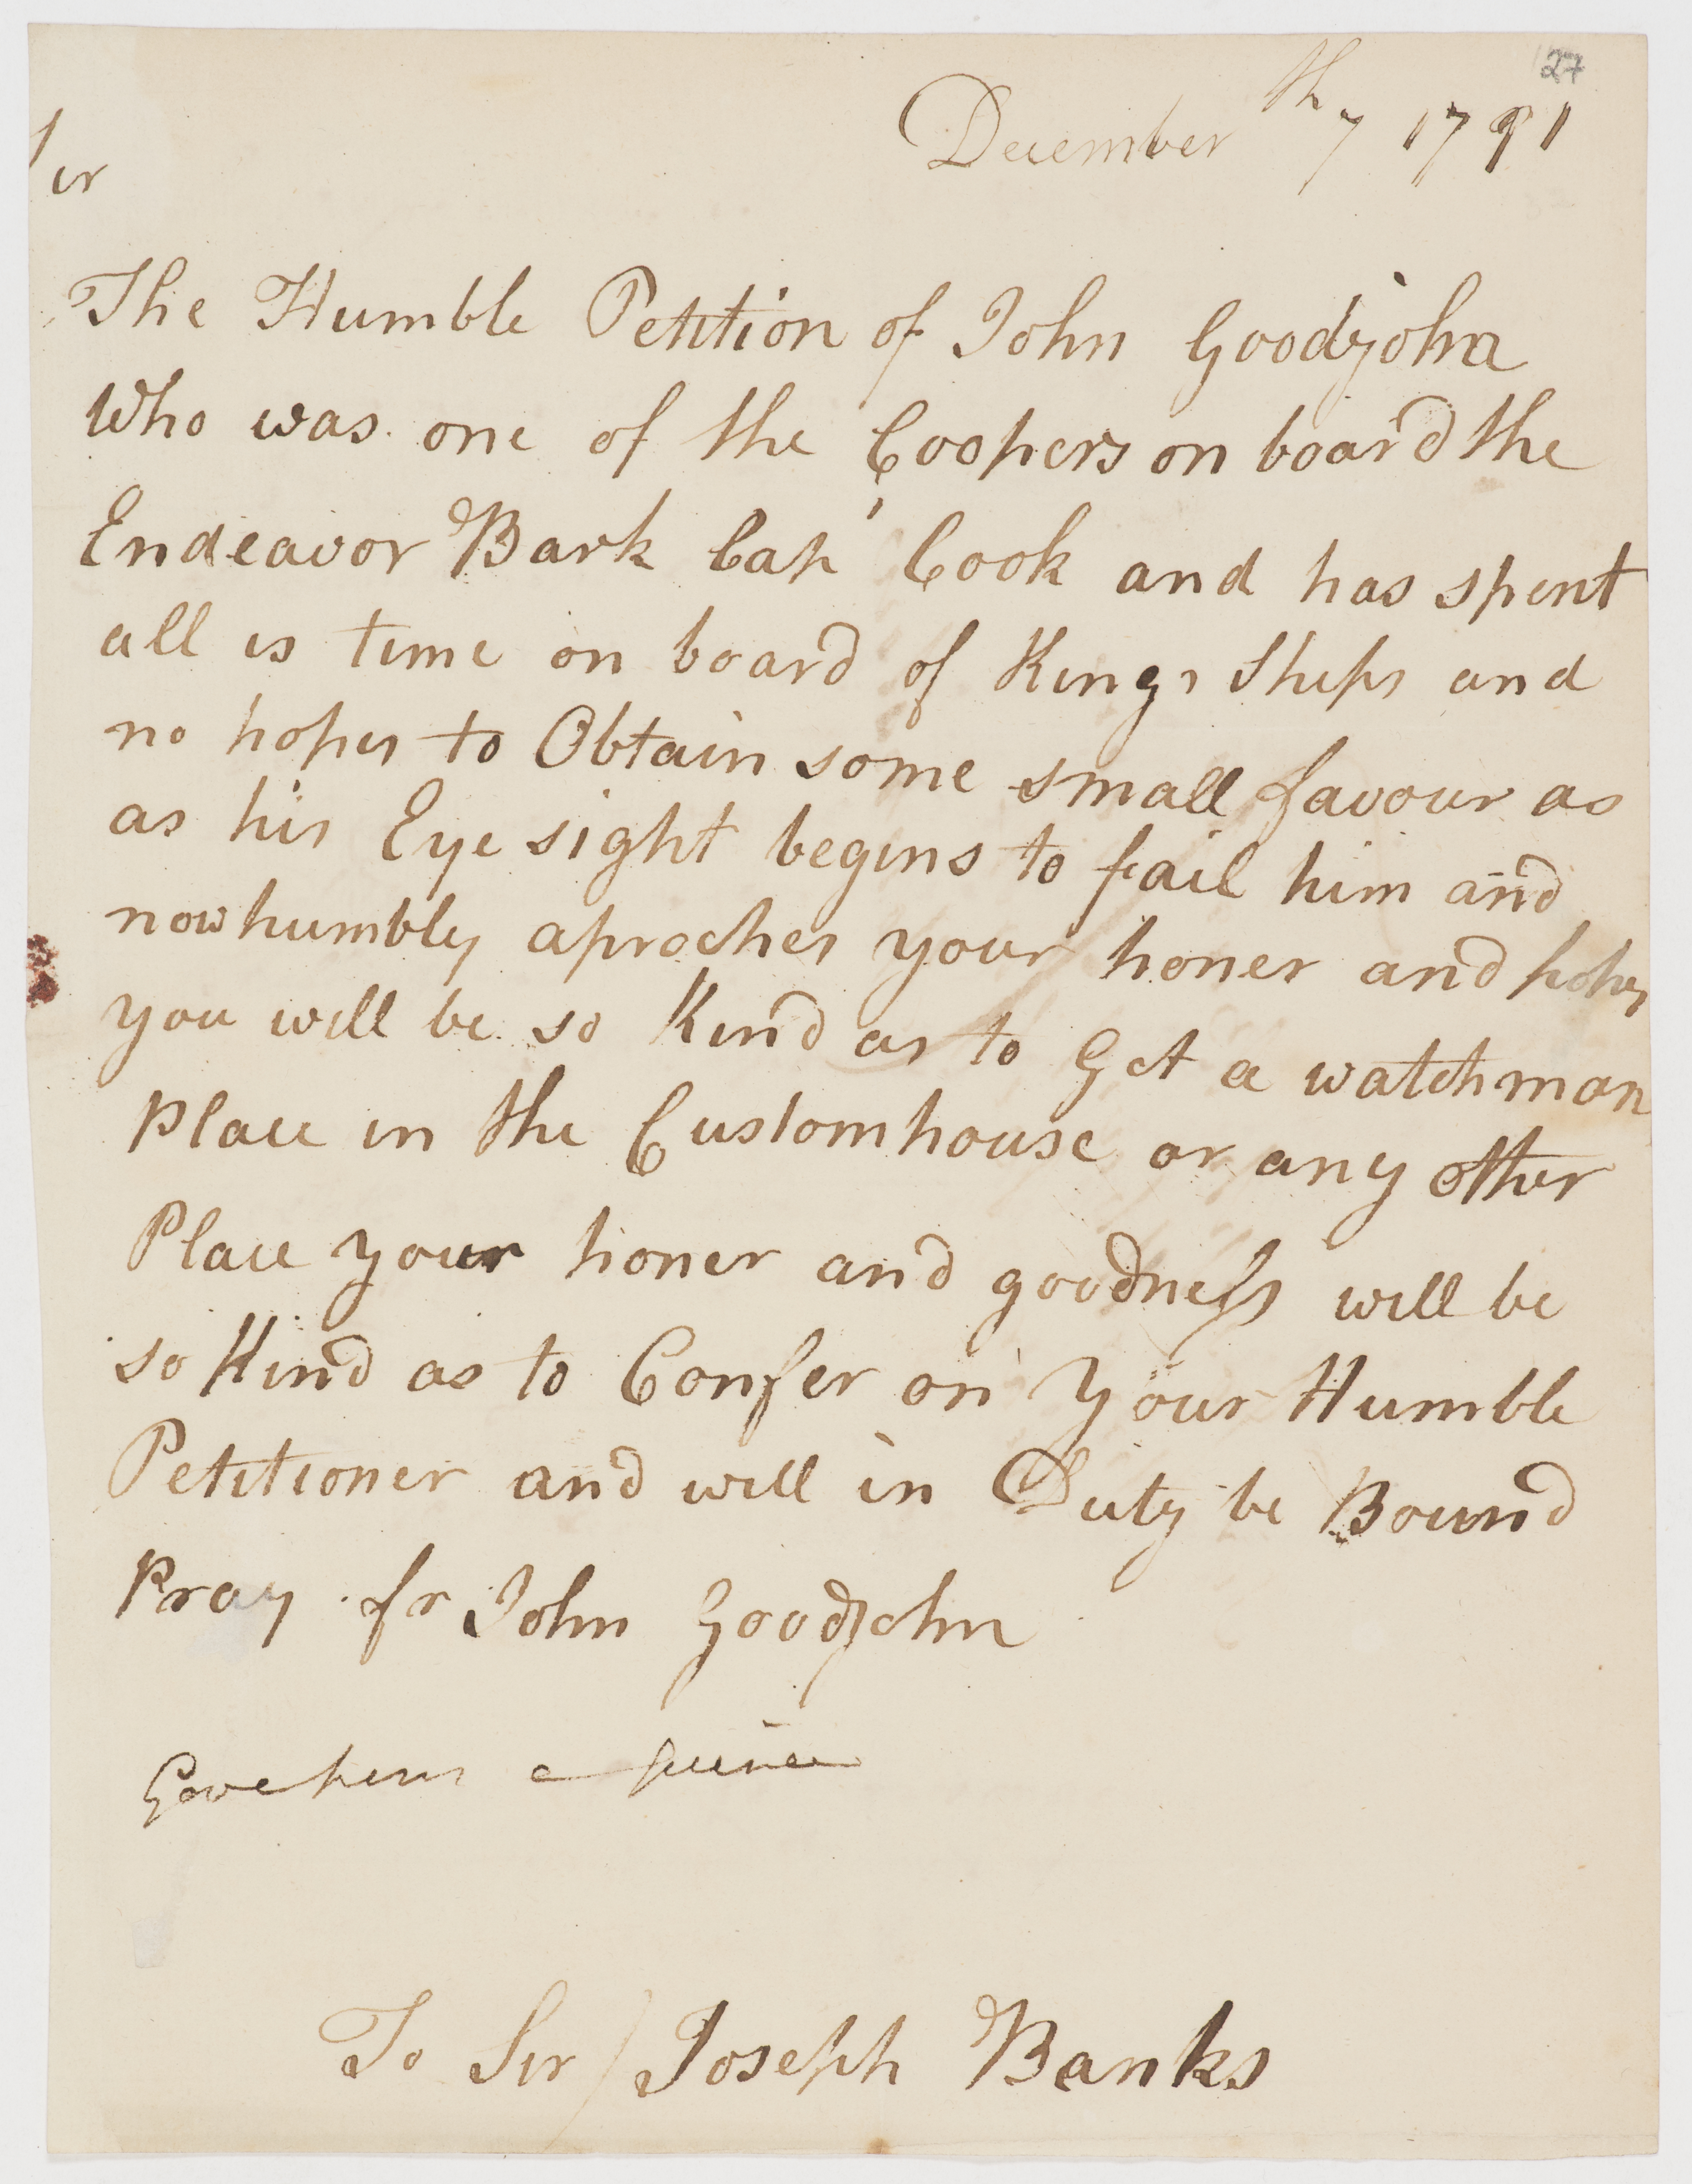 27
December th 7 1791
Sir
The Humble Petition of John Goodjohn
Who was one of the Coopers on board the
Endeavor Bark Cap' Cook and has spent
all is time on board of Kings Ships and
no hopes to Obtain some small favour as
as his Eye sight begins to fail him and
now humbly aproches your honer and hopes
you will be so Kind as to Get a watchman
place in the Customhouse or any other
Place your honer and goodness will be
so Kind as to Confer on Your Humble
Petitioner and will in Duty be Bound
Pray fr John Goodjohn
Gave him a Guinea
To Sir / Joseph Banks